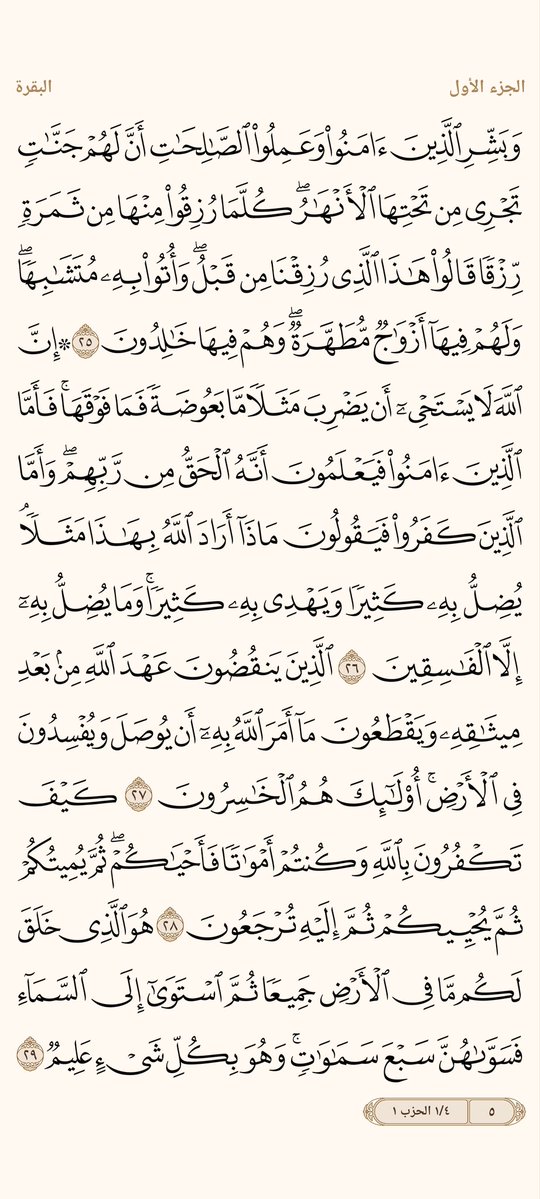 الجزء الأول
البقرة
وَبَشِّرِ ٱلَّذِينَ ءَامَنُوا۟ وَعَمِلُوا۟ ٱلصَّـٰلِحَـٰتِ أَنَّ لَهُمْ جَنَّـٰتٍ
تَجْرِى مِن تَحْتِهَا ٱلْأَنْهَـٰرُ ۖ كُلَّمَا رُزِقُوا۟ مِنْهَا مِن ثَمَرَةٍ
رِّزْقًا قَالُوا۟ هَـٰذَا ٱلَّذِى رُزِقْنَا مِن قَبْلُ ۖ وَأُتُوا۟ بِهِۦ مُتَشَـٰبِهًا ۖ
وَلَهُمْ فِيهَآ أَزْوَٰجٌ مُّطَهَّرَةٌ ۖ وَهُمْ فِيهَا خَـٰلِدُونَ ٢٥ ۞ إِنَّ
ٱللَّهَ لَا يَسْتَحْىِۦٓ أَن يَضْرِبَ مَثَلًا مَّا بَعُوضَةً فَمَا فَوْقَهَا ۚ فَأَمَّا
ٱلَّذِينَ ءَامَنُوا۟ فَيَعْلَمُونَ أَنَّهُ ٱلْحَقُّ مِن رَّبِّهِمْ ۖ وَأَمَّا
ٱلَّذِينَ كَفَرُوا۟ فَيَقُولُونَ مَاذَآ أَرَادَ ٱللَّهُ بِهَـٰذَا مَثَلًا ۘ
يُضِلُّ بِهِۦ كَثِيرًا وَيَهْدِى بِهِۦ كَثِيرًا ۚ وَمَا يُضِلُّ بِهِۦٓ
إِلَّا ٱلْفَـٰسِقِينَ ٢٦ ٱلَّذِينَ يَنقُضُونَ عَهْدَ ٱللَّهِ مِنۢ بَعْدِ
مِيثَـٰقِهِۦ وَيَقْطَعُونَ مَآ أَمَرَ ٱللَّهُ بِهِۦٓ أَن يُوصَلَ وَيُفْسِدُونَ
فِى ٱلْأَرْضِ ۚ أُو۟لَـٰٓئِكَ هُمُ ٱلْخَـٰسِرُونَ ٢٧ كَيْفَ
تَكْفُرُونَ بِٱللَّهِ وَكُنتُمْ أَمْوَٰتًا فَأَحْيَـٰكُمْ ۖ ثُمَّ يُمِيتُكُمْ
ثُمَّ يُحْيِيكُمْ ثُمَّ إِلَيْهِ تُرْجَعُونَ ٢٨ هُوَ ٱلَّذِى خَلَقَ
لَكُم مَّا فِى ٱلْأَرْضِ جَمِيعًا ثُمَّ ٱسْتَوَىٰٓ إِلَى ٱلسَّمَآءِ
فَسَوَّىٰهُنَّ سَبْعَ سَمَـٰوَٰتٍ ۚ وَهُوَ بِكُلِّ شَىْءٍ عَلِيمٌ ٢٩
٥
١/٤ الحزب ١